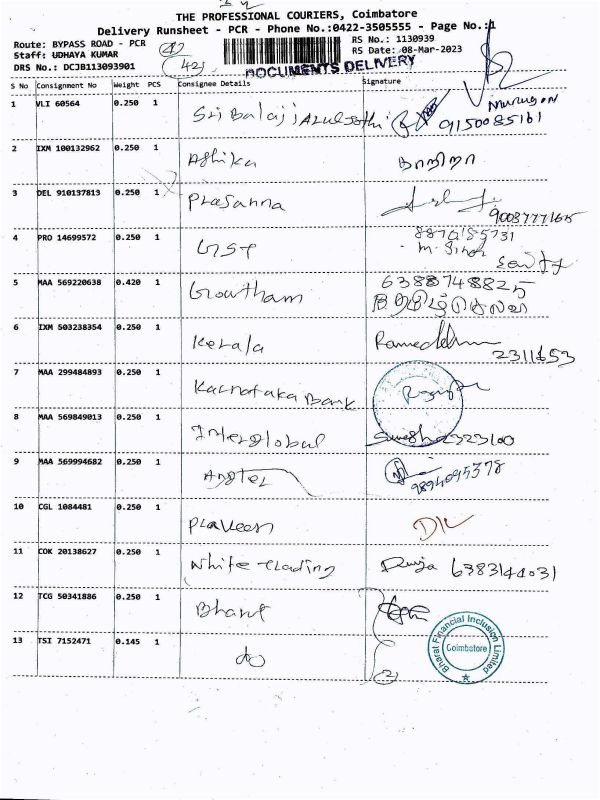 THE PROFESSIONAL COURIERS, Coimbatore
Delivery Runsheet - PCR - Phone No.:0422-3505555 - Page No.:1
Route: BYPASS ROAD - PCR
RS No.: 1130939
Staff: UDHAYA KUMAR
RS Date: 08-Mar-2023
DRS No.: DCJB113093901
42
DOCUMENTS DELIVERY
S No Consignment No Weight PCS Consignee Details Signature
1 VLI 60564 0.250 1 Sri Balaji Murugan
9150085161
2 IXM 100132962 0.250 1 Ashika
3 DEL 910137813 0.250 1 Prasanna
4 PRO 14699572 0.250 1 GST 8870185731
5 MAA 569220638 0.420 1 Gowtham 6388748825
6 IXM 503238354 0.250 1 Kerala
2311653
7 MAA 299484893 0.250 1 Karnataka Bank
8 MAA 569849013 0.250 1 Interglobal Suresh 2323100
9 MAA 569994682 0.250 1
9894095378
10 CGL 1084481 0.250 1 Praveen
11 COK 20138627 0.250 1 White trading 6383144031
12 TCG 50341886 0.250 1 Bharat
13 TSI 7152471 0.145 1 do
2
Bharat Financial Inclusion Limited
Coimbatore